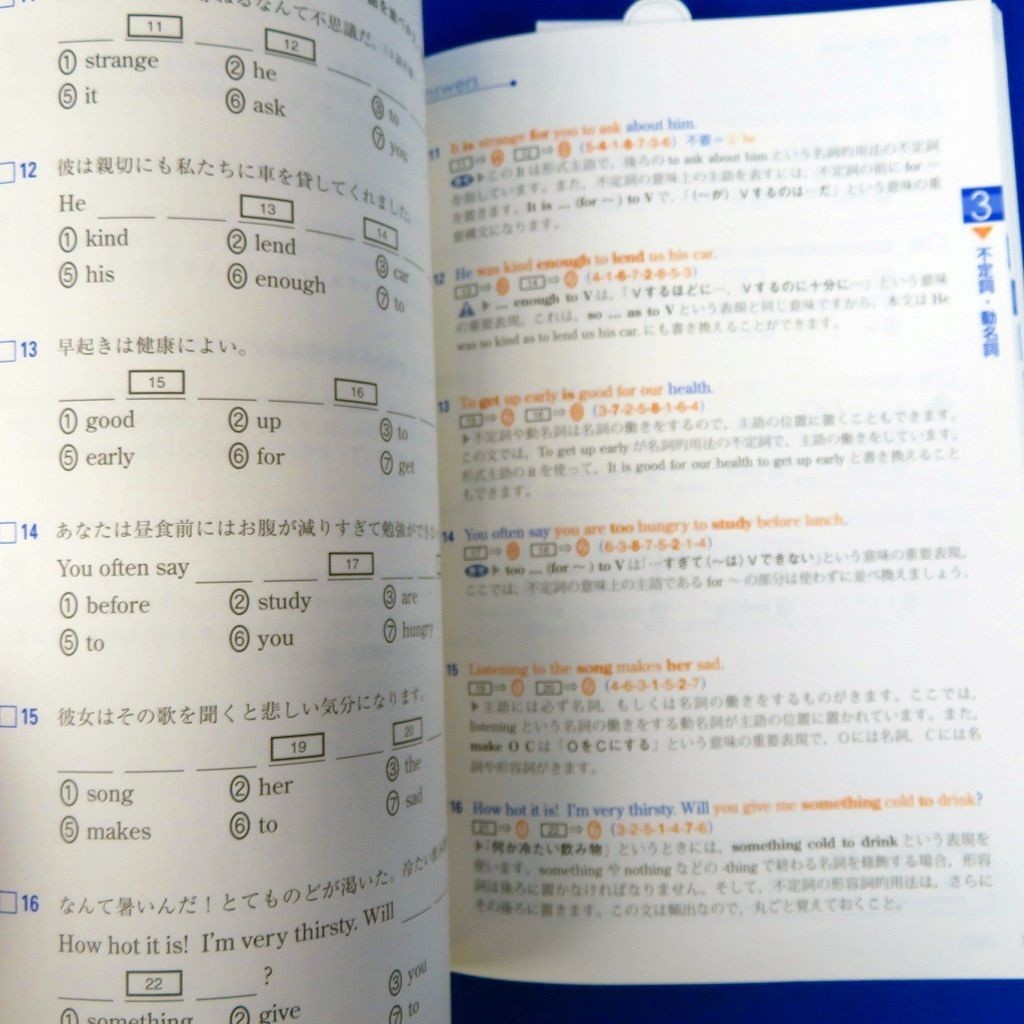 なんて不思議だ。
11 12
① strange ② he ③ to
⑤ it ⑥ ask ⑦ you
12 彼は親切にも私たちに車を貸してくれました。
He 13 14
① kind ② lend ③ car
⑤ his ⑥ enough ⑦ to
13 早起きは健康によい。
15 16
① good ② up ③ to
⑤ early ⑥ for ⑦ get
14 あなたは昼食前にはお腹が減りすぎて勉強ができ
You often say 17
① before ② study ③ are
⑤ to ⑥ you ⑦ hungry
15 彼女はその歌を聞くと悲しい気分になります。
19 20
① song ② her ③ the
⑤ makes ⑥ to ⑦ sad
16 なんて暑いんだ！とてものどが渇いた。冷たい
How hot it is! I'm very thirsty. Will
22 ?
① something ② give ③ you
⑦ to
nswers
11 It is strange for you to ask about him.
11 ⇒ ④ 12 ⇒ ⑧ (5-4-1-8-7-3-6) 不要=② he
▶このItは形式主語で，後ろのto ask about himという名詞的用法の不定詞
を指しています。また，不定詞の意味上の主語を表すには，不定詞の前にfor ～
を置きます。It is ... (for ～) to Vで，「(～が) Vするのは…だ」という意味の重
要構文になります。
12 He was kind enough to lend us his car.
13 ⇒ ⑥ 14 ⇒ ③ (4-1-6-7-2-8-5-3)
▶ ... enough to Vは，「Vするほどに…，Vするのに十分に…」という意味
の重要表現。これは，so ... as to Vという表現と同じ意味ですから，本文はHe
was so kind as to lend us his car.にも書き換えることができます。
13 To get up early is good for our health.
15 ⇒ ⑦ 16 ⇒ ⑥ (3-7-2-5-8-1-6-4)
▶不定詞や動名詞は名詞の働きをするので，主語の位置に置くこともできます。
この文では，To get up earlyが名詞的用法の不定詞で，主語の働きをしています。
形式主語のitを使って，It is good for our health to get up earlyと書き換えること
もできます。
14 You often say you are too hungry to study before lunch.
17 ⇒ ⑧ 18 ⇒ ② (6-3-8-7-5-2-1-4)
▶ too ... (for ～) to Vは「…すぎて(～は)Vできない」という意味の重要表現。
ここでは，不定詞の意味上の主語であるfor ～の部分は使わずに並べ換えましょう。
15 Listening to the song makes her sad.
19 ⇒ ① 20 ⇒ ② (4-6-3-1-5-2-7)
▶主語には必ず名詞，もしくは名詞の働きをするものがきます。ここでは，
listeningという名詞の働きをする動名詞が主語の位置に置かれています。また，
make O Cは「OをCにする」という意味の重要表現で，Oには名詞，Cには名
詞や形容詞がきます。
16 How hot it is! I'm very thirsty. Will you give me something cold to drink?
21 ⇒ ① 22 ⇒ ⑦ (3-2-5-1-4-7-6)
▶「何か冷たい飲み物」というときには，something cold to drinkという表現を
使います。somethingやnothingなどの-thingで終わる名詞を修飾する場合，形容
詞は後ろに置かなければなりません。そして，不定詞の形容詞的用法は，さらに
その後ろに置きます。この文は頻出なので，丸ごと覚えておくこと。
3
不定詞・動名詞